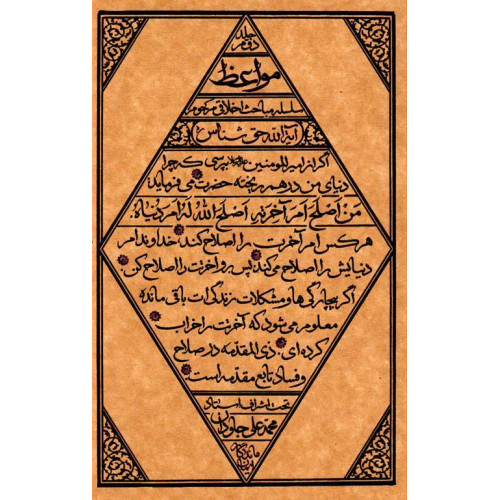 جلد
دوم
مواعظ
سلسله مباحث اخلاقی مرحوم
آیة‌الله حق شناس
اگر از امیرالمومنین بپرسی که چرا
دنیای من درهم ریخته حضرت می فرماید:
مَن اَصلَحَ اَمرَ آخِرَتِهِ اَصلَحَ اللهُ لَهُ اَمرَ دُنیاهُ.
هر کس امر آخرت را اصلاح کند، خداوند امر
دنیایش را اصلاح می کند. پس برو آخرت را اصلاح کن.
اگر بیچارگی ها و مشکلات زندگی ات باقی مانده
معلوم می شود که آخرت را خراب
کرده ای. ذی المقدمه در صلاح
و فساد تابع مقدمه است.
تحت اشراف استاد
محمدعلی جاودان